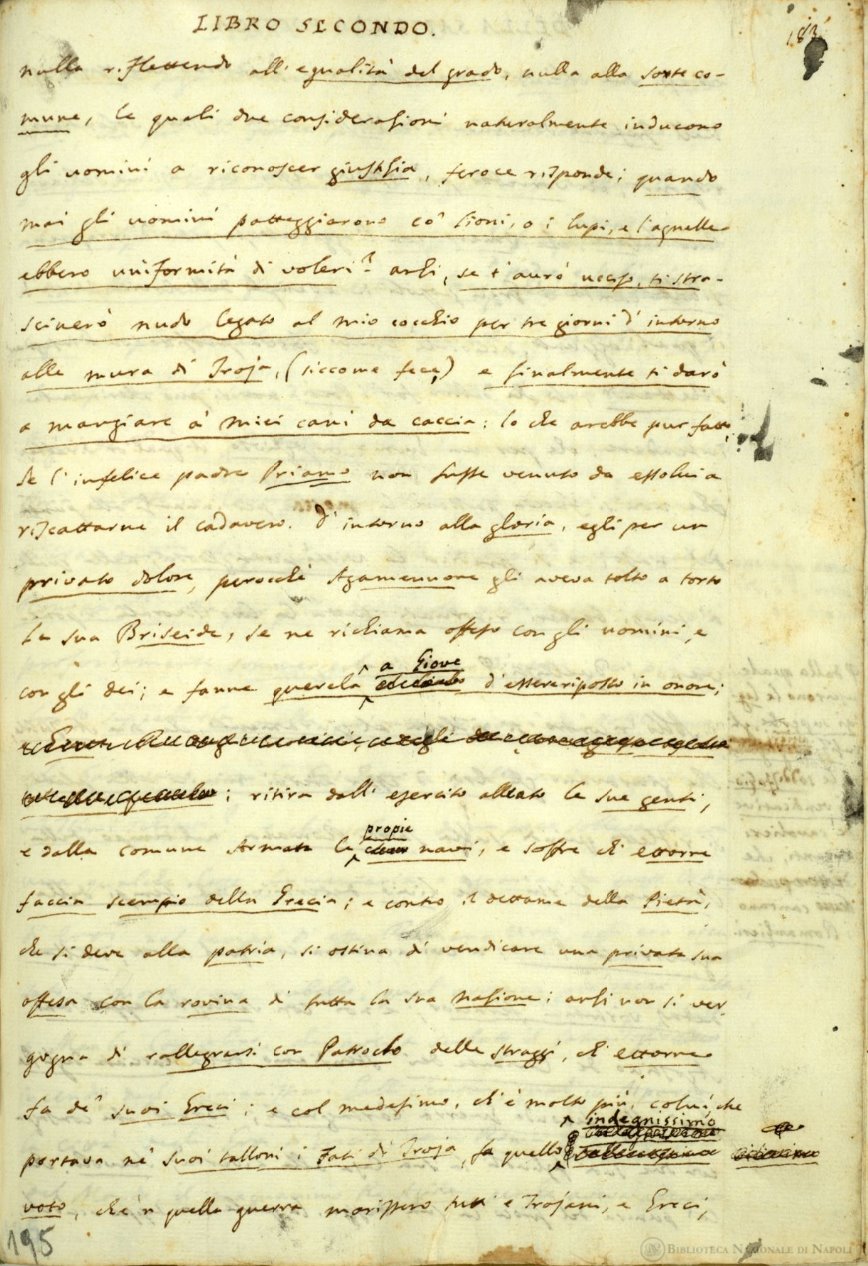 LIBRO SECONDO.
183
nulla riflettendo all' egualità del grado, nulla alla sorte co-
mune, le quali due considerazioni naturalmente inducono
gli uomini a riconoscer giustizia, feroce risponde; quando
mai gli uomini patteggiarono co' lioni, o i lupi, e l'agnelle
ebbero uniformità di voleri? anzi, se t'aurò ucciso, ti stra-
scinerò nudo legato al mio cocchio per tre giorni d' intorno
alle mura di Troja, (siccome fece,) e finalmente ti darò
a mangiare a' miei cani da caccia: lo che arebbe pur fatto,
se l' infelice padre Priamo non fusse venuto da essolui a
riscattarne il cadavero. d' intorno alla gloria, egli per un
privato dolore, perocchè Agamennone gli aveva tolto a torto
la sua Briseide, se ne richiama offeso con gli uomini, e
a Giove
con gli dei; e fanne querela d' essere riposto in onore;
; ritira dall' esercito alleato le sue genti,
propie
e dalla comune Armata le navi, e soffre ch' ettorre
faccia scempio della Grecia; e contro il dettame della Pietà,
che si deve alla patria, si ostina di vendicare una privata sua
offesa con la rovina di tutta la sua Nazione; anzi non si ver-
gogna di rallegrarsi con Patroclo delle straggi, ch' ettorre
fa de' suoi Greci; e col medesimo, ch' è molto più, colui, che
indegnissimo
portava ne' suoi talloni i Fati di Troja, fa quello
voto, che 'n quella guerra morissero tutti e Trojani, e Greci,
195
BIBLIOTECA NAZIONALE DI NAPOLI